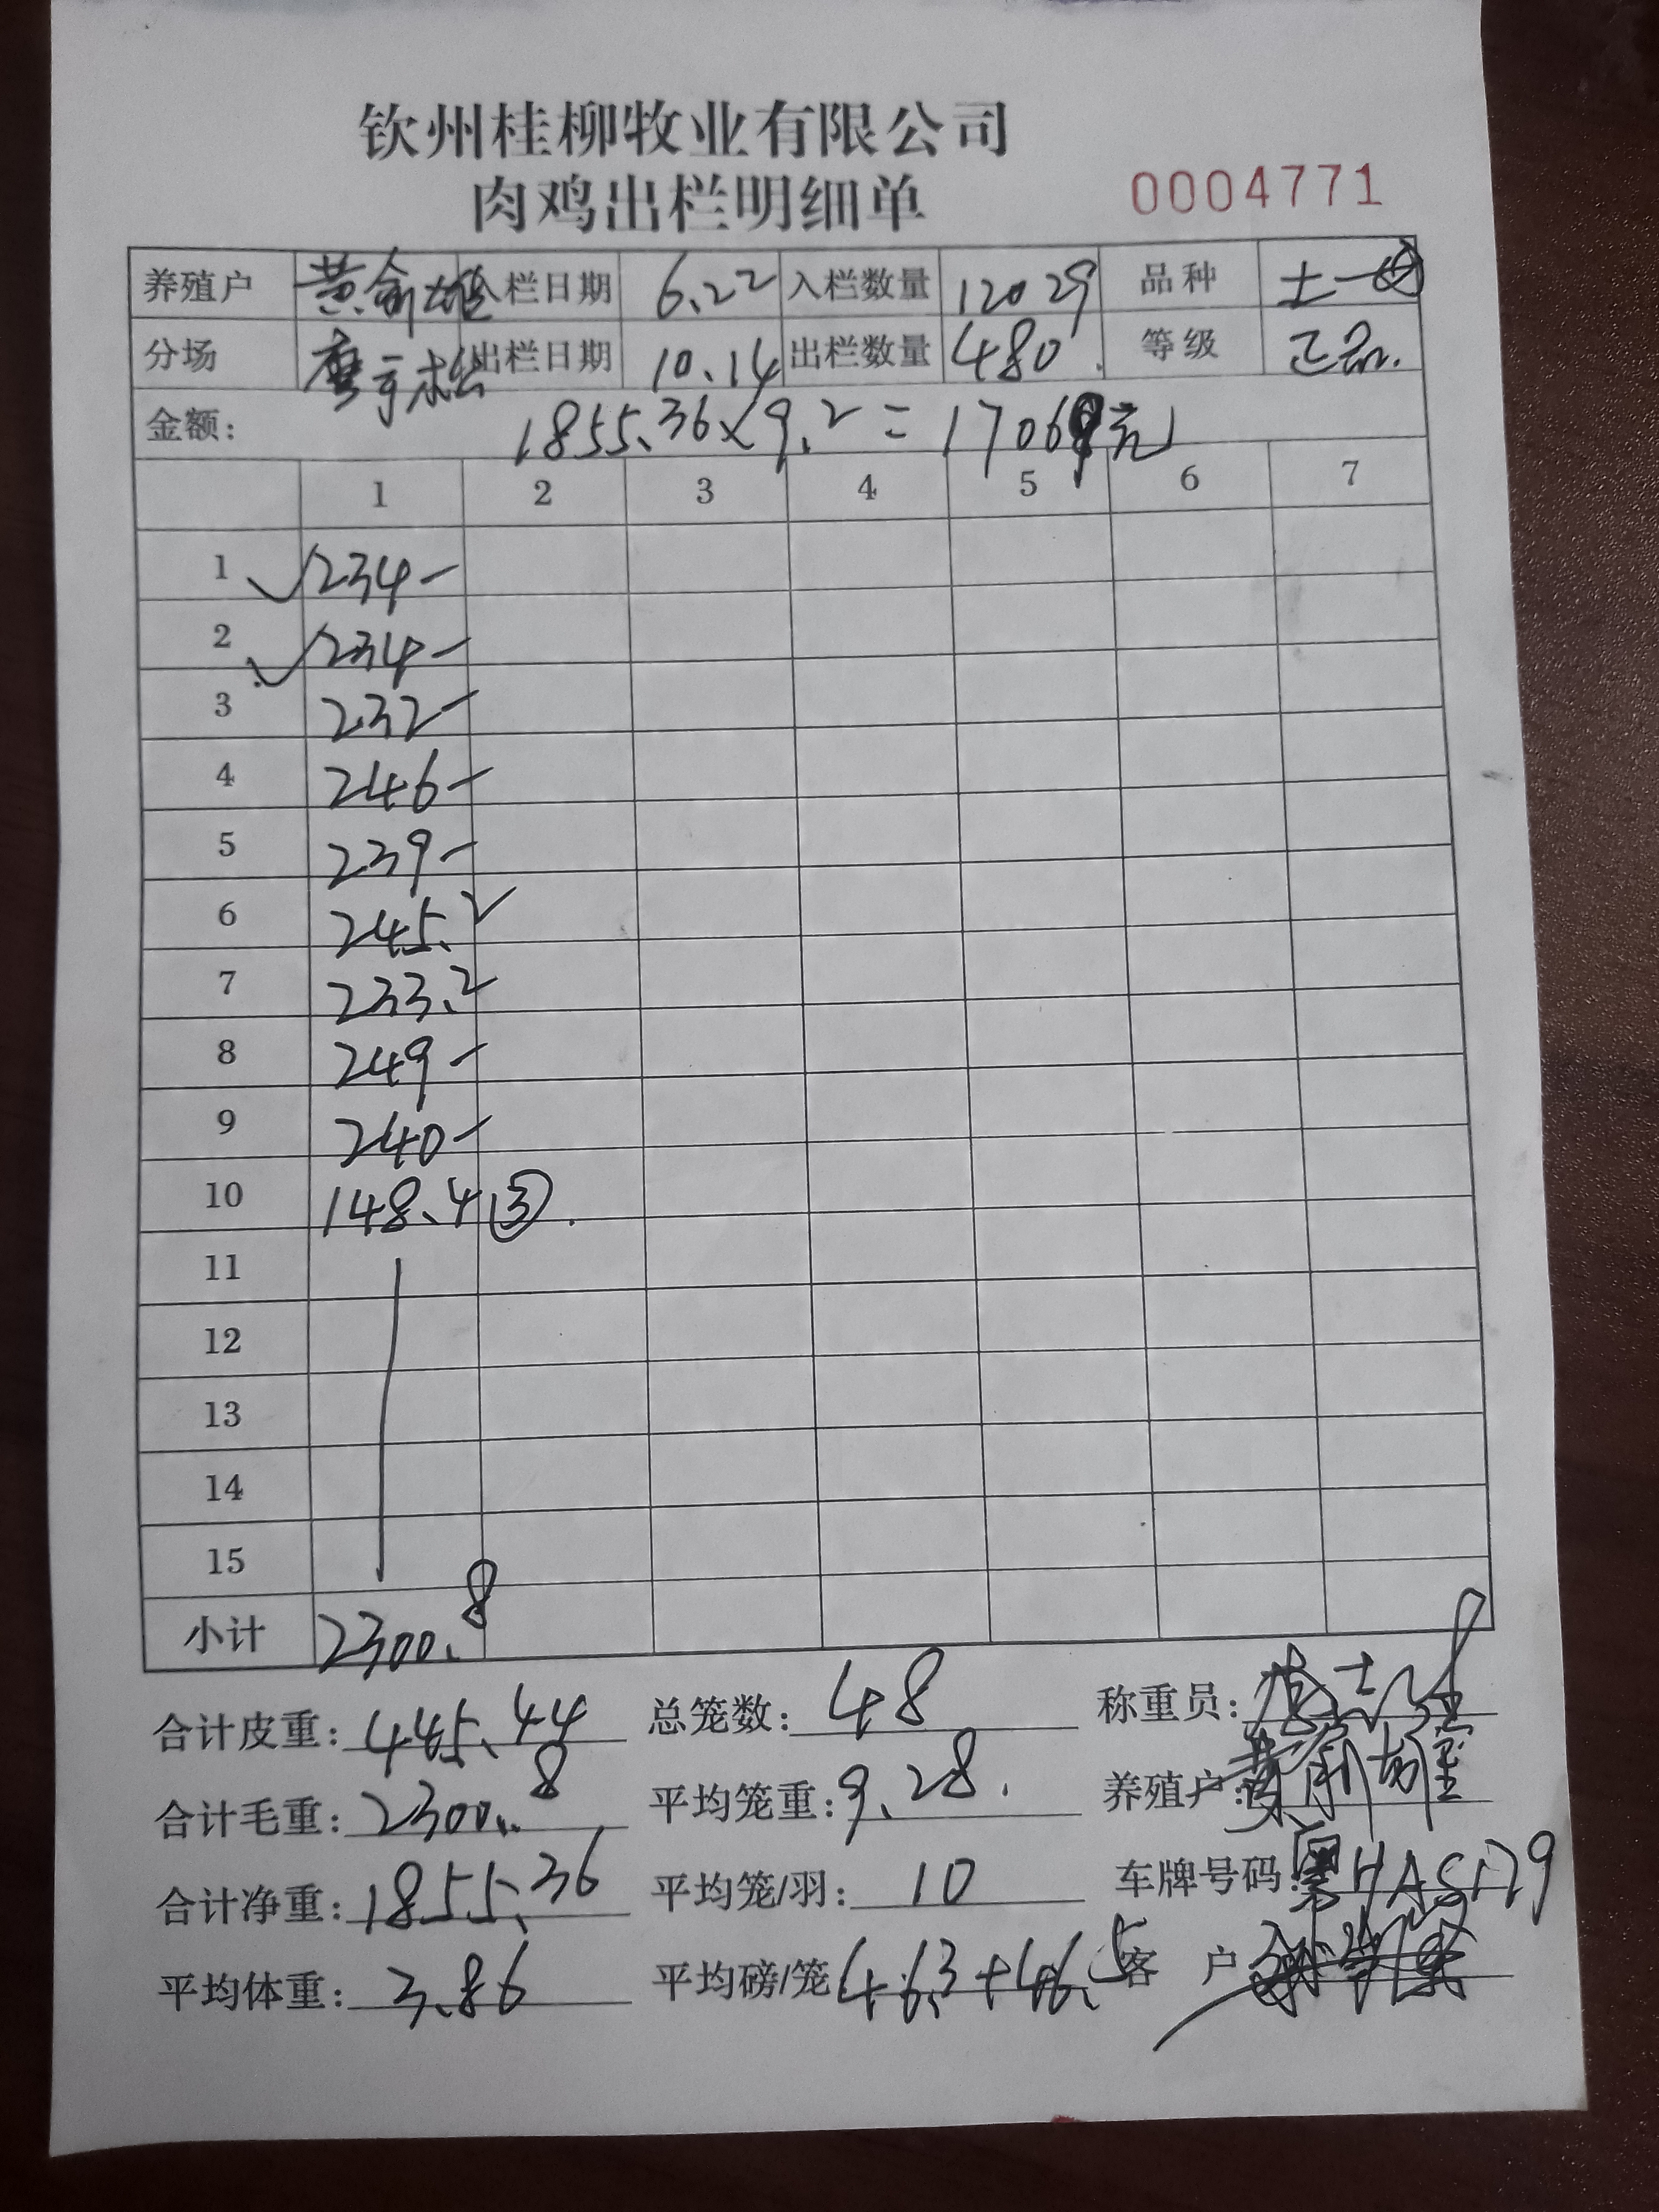 钦州桂柳牧业有限公司
肉鸡出栏明细单 0004771
养殖户 黄俞雄 入栏日期 6.22 入栏数量 12029 品种 土一
分场 出栏日期 10.14 出栏数量 480. 等级 正品.
金额: 1855.36×9.2=17069元
1 2 3 4 5 6 7
1 234-
2 234-
3 232-
4 246-
5 239-
6 245.2
7 233.2
8 249-
9 240-
10 148.4 ③.
11
12
13
14
15
小计 2300.8
合计皮重: 445.44 总笼数: 48 称重员:
合计毛重: 2300.8 平均笼重: 9.28. 养殖户: 黄俞雄
合计净重: 1855.36 平均笼/羽: 10 车牌号码:
平均体重: 3.86 平均磅/笼 4.6.3+46.5 客 户